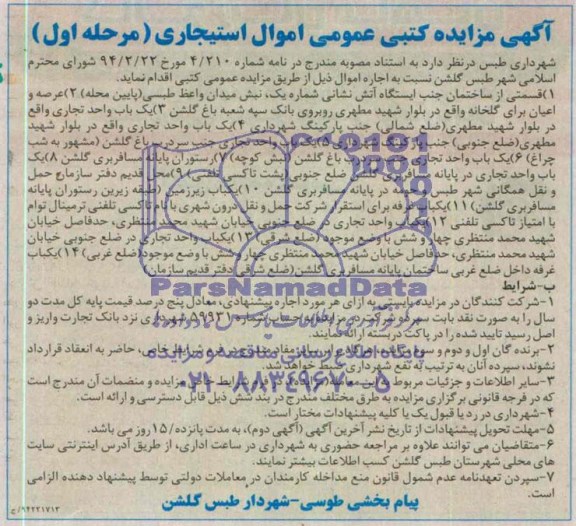 آگهی مزایده کتبی عمومی اموال استیجاری (مرحله اول)
شهرداری طبس درنظر دارد به استناد مصوبه مندرج در نامه شماره ۴/۲۱۰ مورخ ۹۴/۲/۲۲ شورای محترم
اسلامی شهر طبس گلشن نسبت به اجاره اموال ذیل از طریق مزایده عمومی کتبی اقدام نماید.
۱)قسمتی از ساختمان جنب ایستگاه آتش نشانی شماره یک، نبش میدان واعظ طبسی(پایین محله) ۲)عرصه و
اعیان برای گلخانه واقع در بلوار شهید مطهری روبروی بانک سپه شعبه باغ گلشن ۳)یک باب واحد تجاری واقع
در بلوار شهید مطهری(ضلع شمالی) جنب پارکینگ شهرداری ۴)یک باب واحد تجاری واقع در بلوار شهید
مطهری(ضلع جنوبی) جنب پارکینگ شهرداری ۵)یک باب واحد تجاری جنب سردرب باغ گلشن (مشهور به شب
چراغ) ۶)یک باب واحد تجاری باغ گلشن (نبش کوچه) ۷)رستوران پایانه مسافربری گلشن ۸)یک
باب واحد تجاری در پایانه مسافربری گلشن ضلع جنوبی پشت تاکسی ۹)محل قدیم دفتر سازمان حمل
و نقل همگانی شهر طبس در پایانه مسافربری گلشن ۱۰)یکباب زیرزمین (طبقه زیرین رستوران پایانه
مسافربری گلشن) ۱۱)یکباب غرفه برای استقرار شرکت حمل و نقل درون شهری با نام تاکسی تلفنی ترمینال توام
با امتیاز تاکسی تلفنی ۱۲)یکباب واحد تجاری در ضلع جنوبی خیابان شهید محمد منتظری، حدفاصل خیابان
شهید محمد منتظری چهار و شش با وضع موجود (ضلع شرقی) ۱۳)یکباب واحد تجاری در ضلع جنوبی خیابان
شهید محمد منتظری، حدفاصل خیابان شهید محمد منتظری چهار و شش با وضع موجود(ضلع غربی) ۱۴)یکباب
غرفه داخل ضلع غربی ساختمان پایانه مسافربری گلشن(ضلع شرقی دفتر قدیم سازمان)
ب-شرایط
۱-شرکت کنندگان در مزایده بایستی به ازای هر مورد اجاره پیشنهادی، معادل پنج درصد قیمت پایه کل مدت دو
سال را به صورت نقد بابت سپرده شرکت در مزایده به حساب شماره ۵۹۹۳۱ شهرداری نزد بانک تجارت واریز و
اصل رسید تایید شده را در پاکت دربسته ارائه نمایند.
۲-برنده گان اول و دوم و سوم حاضر به انعقاد قرارداد
نشوند، سپرده آنان به ترتیب به نفع شهرداری ضبط خواهد شد.
۳-سایر اطلاعات و جزئیات مربوط شرایط خاص مزایده و منضمات آن مندرج است
که در فرجه قانونی برگزاری مزایده به طرق مختلف مندرج در بند شش ذیل قابل دسترسی و ارائه است.
۴-شهرداری در رد یا قبول یک یا کلیه پیشنهادات مختار است.
۵-مهلت تحویل پیشنهادات از تاریخ نشر آخرین آگهی (آگهی دوم)، به مدت پانزده/۱۵ روز می باشد.
۶-متقاضیان می توانند علاوه بر مراجعه حضوری به شهرداری در ساعت اداری، از طریق آدرس اینترنتی سایت
های محلی شهرستان طبس گلشن کسب اطلاعات بیشتر نمایند.
۷-سپردن تعهدنامه عدم شمول قانون منع مداخله کارمندان در معاملات دولتی توسط پیشنهاد دهنده الزامی
است.
پیام بخشی طوسی-شهردار طبس گلشن
۹۴۲۲۱۷۱۲/خ
ParsNamadData
پایگاه اطلاع رسانی مناقصه و مزایده
۰۲۱-۸۸۳۴۹۶۷۰-۵